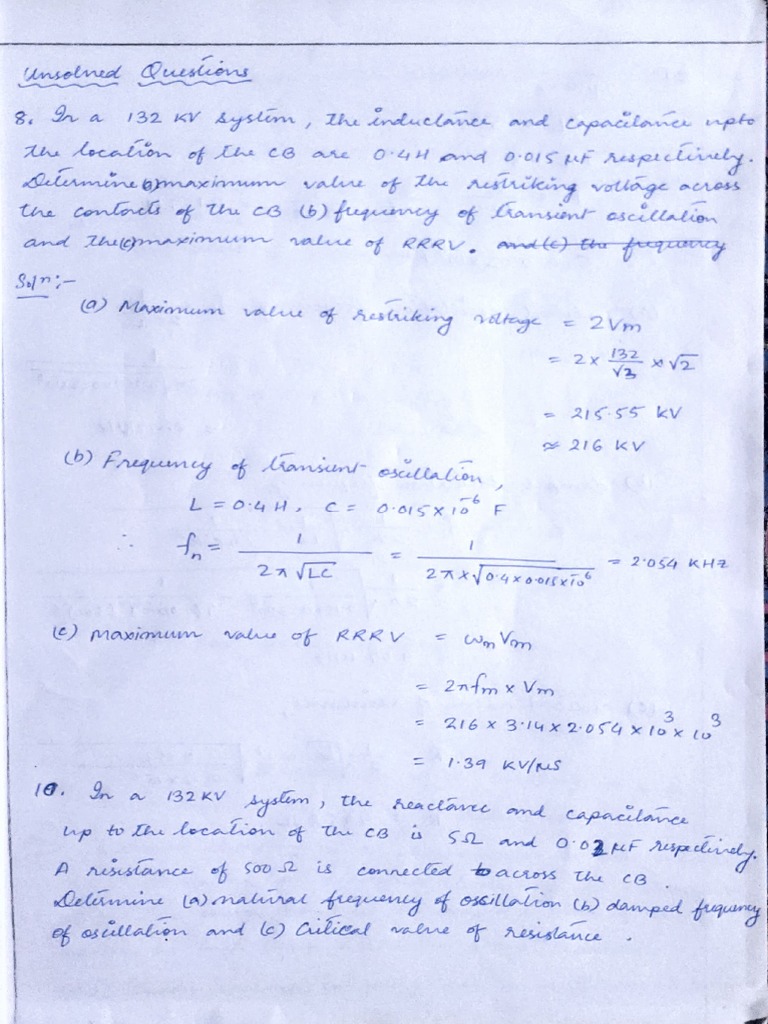 Unsolved Questions
8. In a 132 KV system, the inductance and capacitance upto
the location of the CB are 0.4H and 0.015 μF respectively.
Determine (a) maximum value of the restriking voltage across
the contacts of the CB (b) frequency of transient oscillation
and the (c) maximum value of RRRV. and (c) the frequency
Soln:-
(a) Maximum value of restriking voltage = 2Vm
= 2 × 132/√3 × √2
= 215.55 KV
≈ 216 KV
(b) Frequency of transient oscillation,
L = 0.4 H, C = 0.015 × 10⁻⁶ F
∴ fn = 1/(2π√LC) = 1/(2π×√(0.4×0.015×10⁻⁶)) = 2.054 KHz
(c) Maximum value of RRRV = ωn Vm
= 2πfn × Vm
= 216 × 3.14 × 2.054 × 10³ × 10³
= 1.39 KV/μs
10. In a 132 KV system, the reactance and capacitance
up to the location of the CB is 5Ω and 0.02 μF respectively.
A resistance of 500 Ω is connected to across the CB.
Determine (a) natural frequency of oscillation (b) damped frequency
of oscillation and (c) Critical value of resistance.